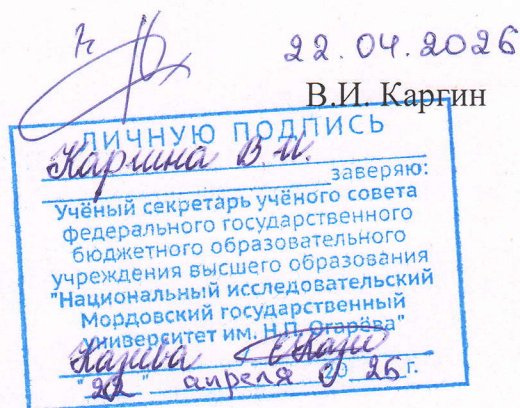 22.04.2026
В.И. Каргин
ЛИЧНУЮ ПОДПИСЬ
Каргина В.И.
заверяю:
Учёный секретарь учёного совета
федерального государственного
бюджетного образовательного
учреждения высшего образования
"Национальный исследовательский
Мордовский государственный
университет им. Н.П. Огарёва"
"22" апреля 20 26 г.